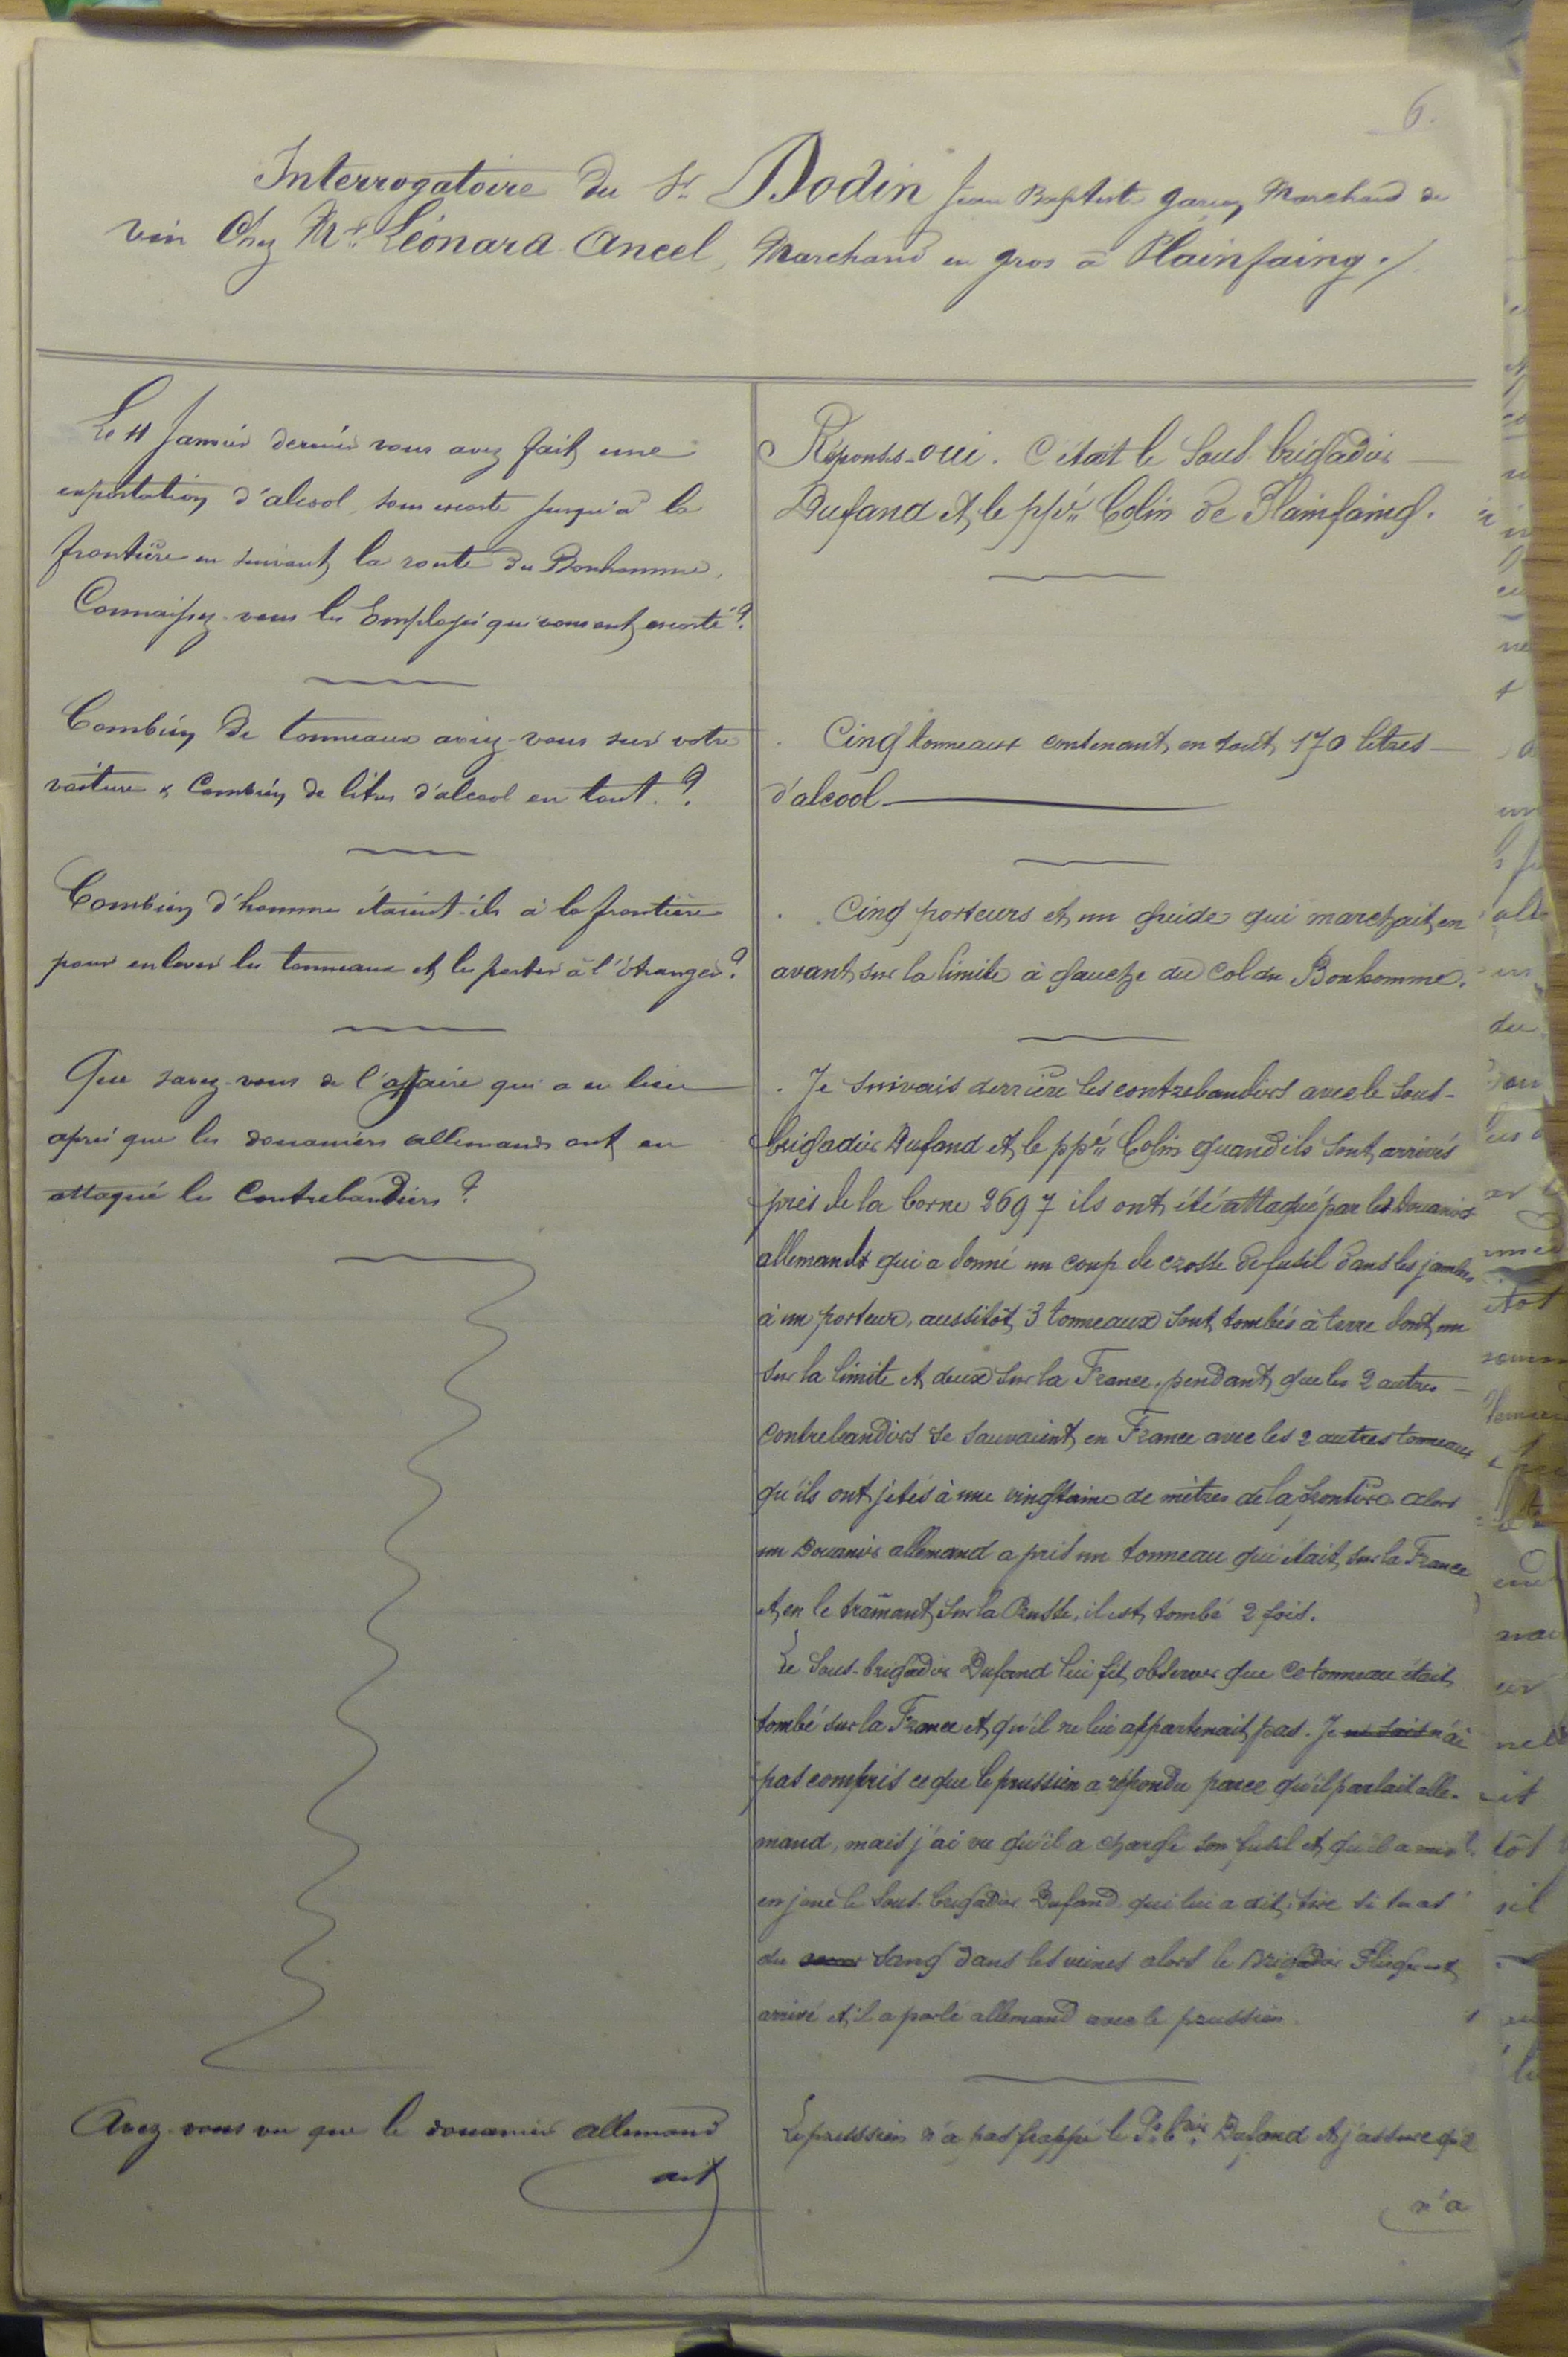 6.
Interrogatoire du Sr. Dodin Jean Baptiste garçon Marchand de
vin Chez Mr. Léonard Ancel, Marchand en gros à Plainfaing ./
Le 11 Janvier dernier vous avez fait une
exportation d'alcool, sous escorte jusqu'à la
frontière en suivant la route du Bonhomme,
Connaissez-vous les Employés qui vous ont escorté ?
Réponses - oui. C'était le Sous-brigadier
Dufand et le ppé Colin de Plainfaing.
Combien de tonneaux aviez-vous sur votre
voiture & Combien de litres d'alcool en tout ?
Cinq tonneaux contenant en tout 170 litres
d'alcool
Combien d'hommes étaient-ils à la frontière
pour enlever les tonneaux et les porter à l'étranger ?
Cinq porteurs et un guide qui marchait en
avant sur la limite à gauche du Col du Bonhomme.
Que savez-vous de l'affaire qui a eu lieu
après que les douaniers allemands ont eu
attaqué les Contrebandiers ?
Je suivais derrière les contrebandiers avec le Sous-
brigadier Dufand et le ppé Colin quand ils sont arrivés
près de la borne 2697 ils ont été attaqué par les Douaniers
allemands qui a donné un coup de crosse de fusil dans les jambes
à un porteur, aussitôt 3 tonneaux sont tombés à terre dont un
sur la limite et deux sur la France, pendant que les 2 autres
contrebandiers se sauvaient en France avec les 2 autres tonneaux
qu'ils ont jetés à une vingtaine de mètres de la frontière alors
un Douanier allemand a pris un tonneau qui était sur la France
et en le trainant sur la Prusse, il est tombé 2 fois.
Le Sous-brigadier Dufand lui fit observer que ce tonneau était
tombé sur la France et qu'il ne lui appartenait pas. Je ne sais n'ai
pas compris ce que le prussien a répondu parce qu'il parlait alle-
mand, mais j'ai vu qu'il a chargé son fusil et qu'il a mis
en joue le Sous-brigadier Dufand qui lui a dit, tire si tu as
du sang dans les veines alors le Brigadier est
arrivé et il a parlé allemand avec le prussien.
Avez-vous vu que le douanier allemand
ait
Le prussien n'a pas frappé le S. bier Dufand et j'assure qu'il
n'a